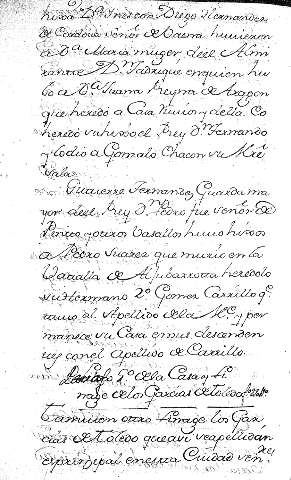 hixa D.ª Ines con Diego Hernandez
de Cordova señor de Baena huvieron
a D.ª Maria muger de el Almi
rante D.n Fadrique en quien hu
bo a D.ª Juana Reyna de Aragon
que heredó a Casa Ruvios y della Co
heredó su hixo el Rey D.n Fernando
y lo dio a Gonzalo Chacon su M.re
Sala
Gutierre Fernandez Guarda ma
yor de el Rey D.n Pedro fue señor de
Pinto y otros Vasallos huvo hixos
a Pedro Suarez que murio en la
Vatalla de Aljubarrota heredolo
su Hermano 2.º Gomez Carrillo q.e
tomo el Apellido de la M.e y per
manece su Casa en sus desenden
tes con el Apellido de Carrillo.
de la Casa y Li
nage de los Garcias de Toledo
Tamvien otro Linage los Gar
cias de Toledo que assi se apellidan
es principal en esta Ciudad